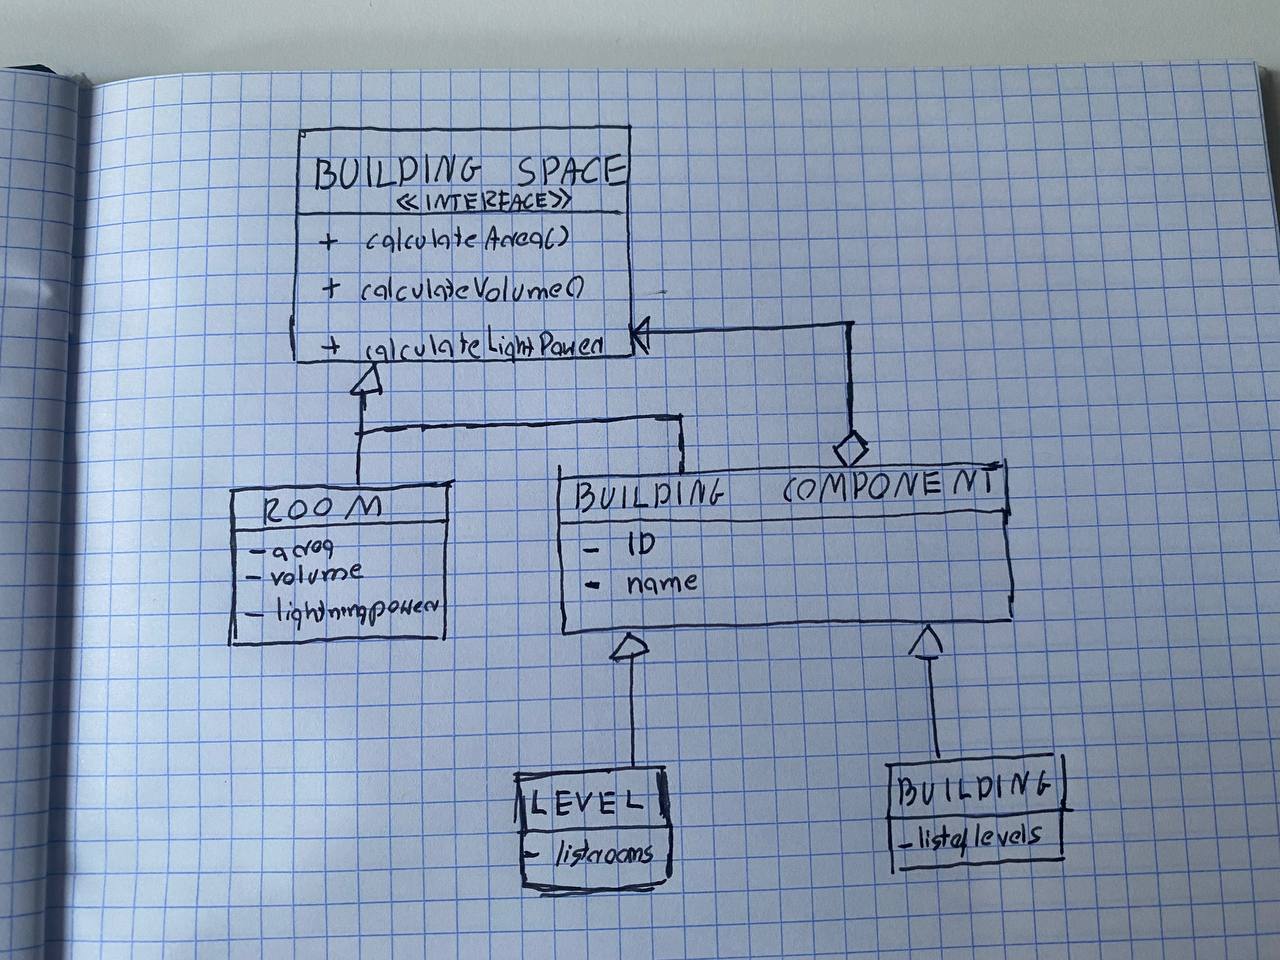 BUILDING SPACE
«INTERFACE»
+ calculateArea()
+ calculateVolume()
+ calculateLightPower
ROOM
- area
- volume
- lightningpower
BUILDING COMPONENT
- ID
- name
LEVEL
- listrooms
BUILDING
- listoflevels